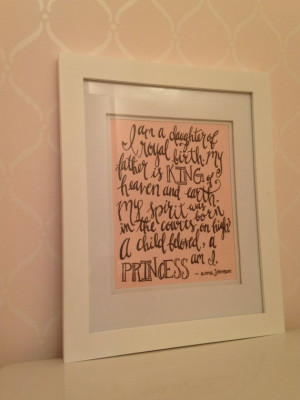 I am a daughter of
royal birth. My
father is KING of
heaven and earth.
My spirit was born
in the courts on high.
A child beloved, a
PRINCESS am I.
— anna johnson